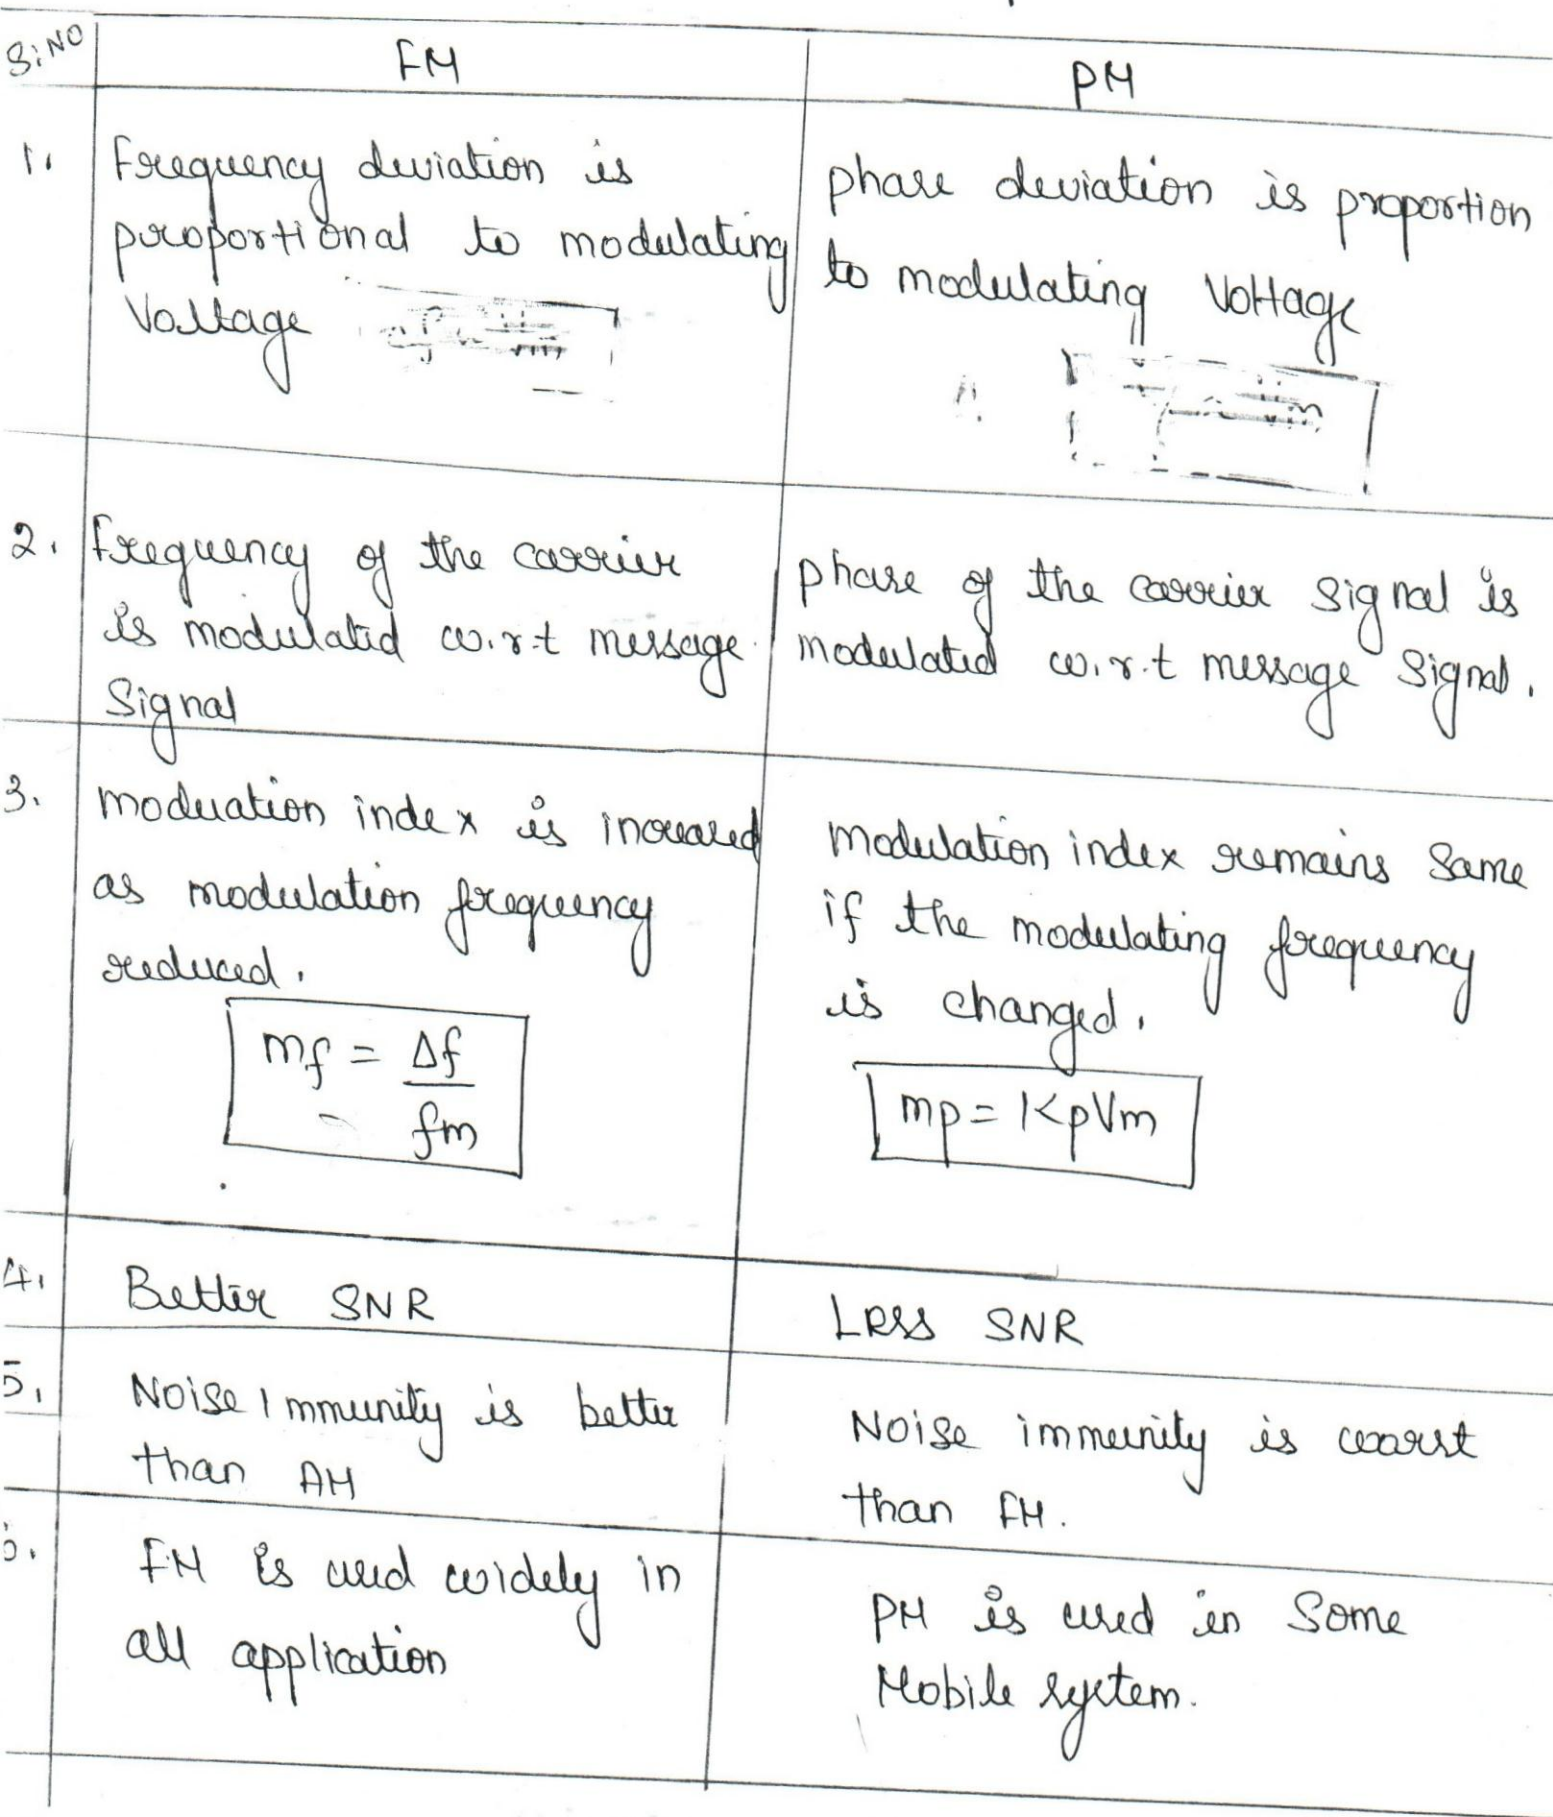 Si NO FM PM
1. Frequency deviation is
proportional to modulating
Voltage
phase deviation is proportion
to modulating Voltage
2. Frequency of the carrier
is modulated w.r.t message
Signal
phase of the carrier signal is
modulated w.r.t message Signal.
3. moduation index is increased
as modulation frequency
reduced.
mf = Δf
fm
modulation index remains Same
if the modulating frequency
is changed.
mp = KpVm
4. Better SNR
Less SNR
5. Noise Immunity is better
than AM
Noise immunity is worst
than FM.
6. FM is used widely in
all application
PM is used in Some
Mobile system.